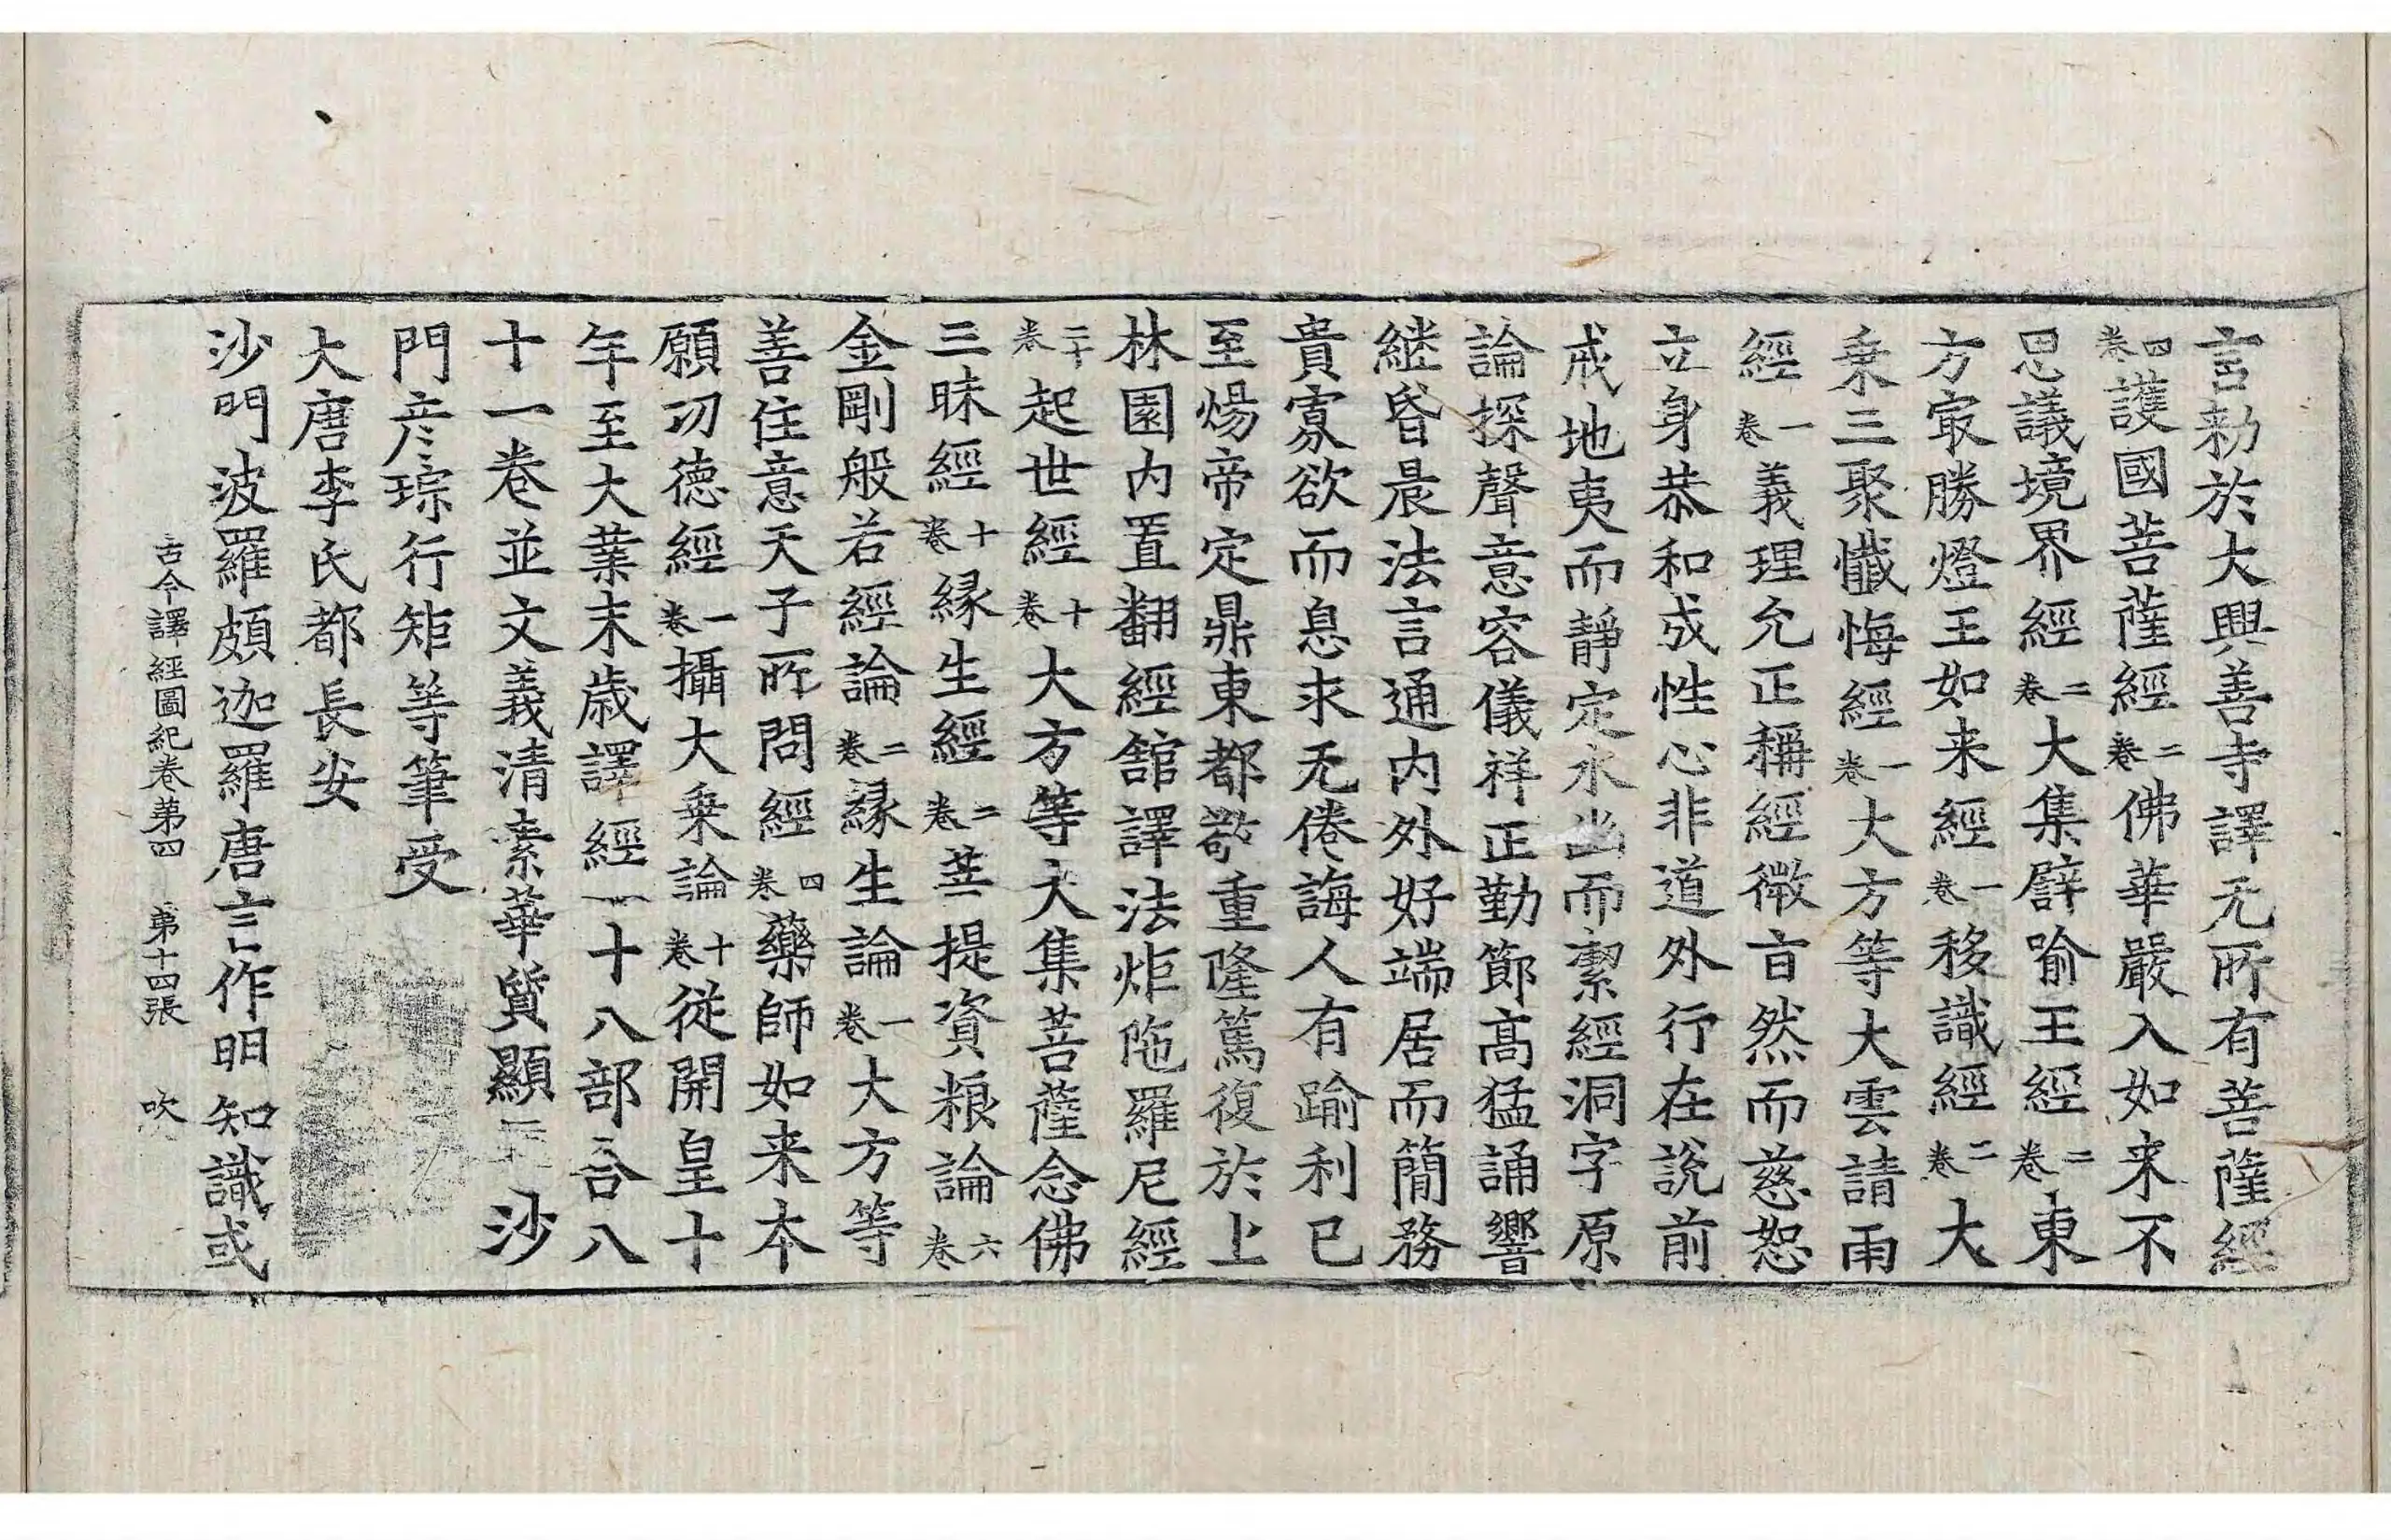 言勑於大興善寺譯无所有菩薩經
四卷護國菩薩經二卷佛華嚴入如来不
思議境界經二卷大集譬喻王經二卷東
方㝡勝燈王如来經一卷移識經二卷大
乗三聚懺悔經一卷大方等大雲請雨
經一卷義理允正稱經微旨然而慈恕
立身恭和成性心非道外行在說前
戒地夷而靜定水幽而潔經洞字原
論探聲意容儀祥正勤節髙猛誦響
継昏晨法言通內外好端居而簡務
貴寡欲而息求无倦誨人有踰利已
至煬帝定鼎東都敬重隆篤復於上
林園內置翻經舘譯法炬陁羅尼經
二十卷起世經十卷大方等大集菩薩念佛
三昧經十卷縁生經二卷菩提資粮論六卷
金剛般若經論二卷縁生論一卷大方等
善住意天子所問經四卷藥師如来本
願功德經一卷攝大乗論十卷從開皇十
年至大業末歳譯經一十八部合八
十一卷並文義清素華質顯 沙
門彦琮行矩等筆受
大唐李氏都長安
沙門波羅頗迦羅唐言作明知識或
古今譯經圖紀卷第四 第十四張 吹